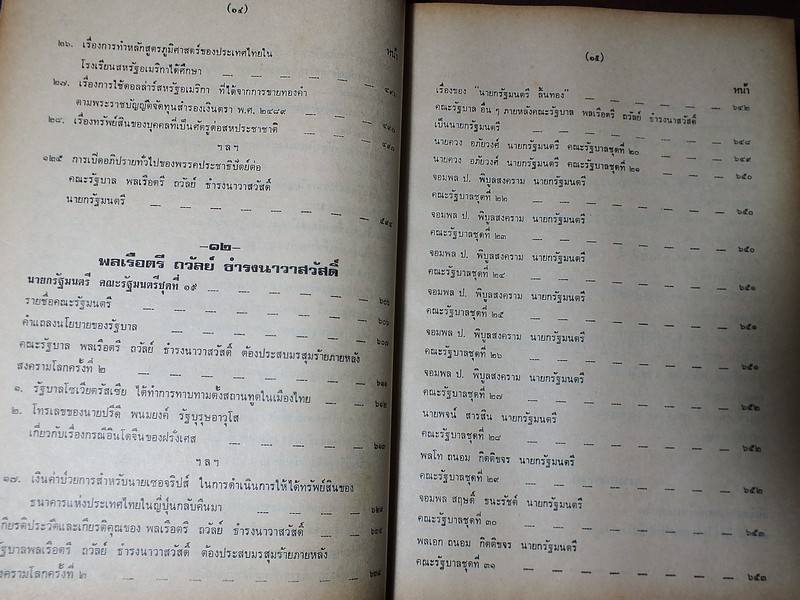 (๑๔)
หน้า
๒๖. เรื่องการทำหลักสูตรภูมิศาสตร์ของประเทศไทยใน
โรงเรียนสหรัฐอเมริกาได้ศึกษา
๒๗. เรื่องการใช้ดอลล่าร์สหรัฐอเมริกา ที่ได้จากการขายทองคำ
ตามพระราชบัญญัติจัดทุนสำรองเงินตรา พ.ศ. ๒๔๘๙
๒๘. เรื่องทรัพย์สินของบุคคลที่เป็นศัตรูต่อสหประชาชาติ
ฯ ล ฯ
๑๒๕ การเปิดอภิปรายทั่วไปของพรรคประชาธิปัตย์ต่อ
คณะรัฐบาล พลเรือตรี ถวัลย์ ธำรงนาวาสวัสดิ์
นายกรัฐมนตรี
—๑๒—
พลเรือตรี ถวัลย์ ธำรงนาวาสวัสดิ์
นายกรัฐมนตรี คณะรัฐมนตรีชุดที่ ๑๙
รายชื่อคณะรัฐมนตรี
คำแถลงนโยบายของรัฐบาล
คณะรัฐบาล พลเรือตรี ถวัลย์ ธำรงนาวาสวัสดิ์ ต้องประสบมรสุมร้ายภายหลัง
สงครามโลกครั้งที่ ๒
๑. รัฐบาลโซเวียตรัสเซีย ได้ทำการทาบทามตั้งสถานทูตในเมืองไทย ๖๑๒
๒. โทรเลขของนายปรีดี พนมยงค์ รัฐบุรุษอาวุโส
เกี่ยวกับเรื่องกรณีอินโดจีนของฝรั่งเศส
ฯ ล ฯ
๑๗. เงินค่าป่วยการสำหรับนายเซอจริปส์ ในการดำเนินการให้ได้ทรัพย์สินของ
ธนาคารแห่งประเทศไทยในญี่ปุ่นกลับคืนมา
เกียรติประวัติและเกียรติคุณของ พลเรือตรี ถวัลย์ ธำรงนาวาสวัสดิ์
รัฐบาลพลเรือตรี ถวัลย์ ธำรงนาวาสวัสดิ์ ต้องประสบมรสุมร้ายภายหลัง
งครามโลกครั้งที่ ๒
(๑๕)
หน้า
เรื่องของ "นายกรัฐมนตรี ลิ้นทอง" ๖๔๒
คณะรัฐบาล อื่น ๆ ภายหลังคณะรัฐบาล พลเรือตรี ถวัลย์ ธำรงนาสวัสดิ์
เป็นนายกรัฐมนตรี ๖๔๘
นายควง อภัยวงศ์ นายกรัฐมนตรี คณะรัฐบาลชุดที่ ๒๐ ๖๔๙
นายควง อภัยวงศ์ นายกรัฐมนตรี คณะรัฐบาลชุดที่ ๒๑ ๖๕๐
จอมพล ป. พิบูลสงคราม นายกรัฐมนตรี
คณะรัฐบาลชุดที่ ๒๒ ๖๕๐
จอมพล ป. พิบูลสงคราม นายกรัฐมนตรี
คณะรัฐบาลชุดที่ ๒๓ ๖๕๐
จอมพล ป. พิบูลสงคราม นายกรัฐมนตรี
คณะรัฐบาลชุดที่ ๒๔ ๖๕๑
จอมพล ป. พิบูลสงคราม นายกรัฐมนตรี
คณะรัฐบาลชุดที่ ๒๕ ๖๕๑
จอมพล ป. พิบูลสงคราม นายกรัฐมนตรี
คณะรัฐบาลชุดที่ ๒๖ ๖๕๑
จอมพล ป. พิบูลสงคราม นายกรัฐมนตรี
คณะรัฐบาลชุดที่ ๒๗ ๖๕๒
นายพจน์ สารสิน นายกรัฐมนตรี
คณะรัฐบาลชุดที่ ๒๘ ๖๕๒
พลโท ถนอม กิตติขจร นายกรัฐมนตรี
คณะรัฐบาลชุดที่ ๒๙ ๖๕๒
จอมพล สฤษดิ์ ธนะรัชต์ นายกรัฐมนตรี
คณะรัฐบาลชุดที่ ๓๐ ๖๕๓
พลเอก ถนอม กิตติขจร นายกรัฐมนตรี
คณะรัฐบาลชุดที่ ๓๑ ๖๕๓